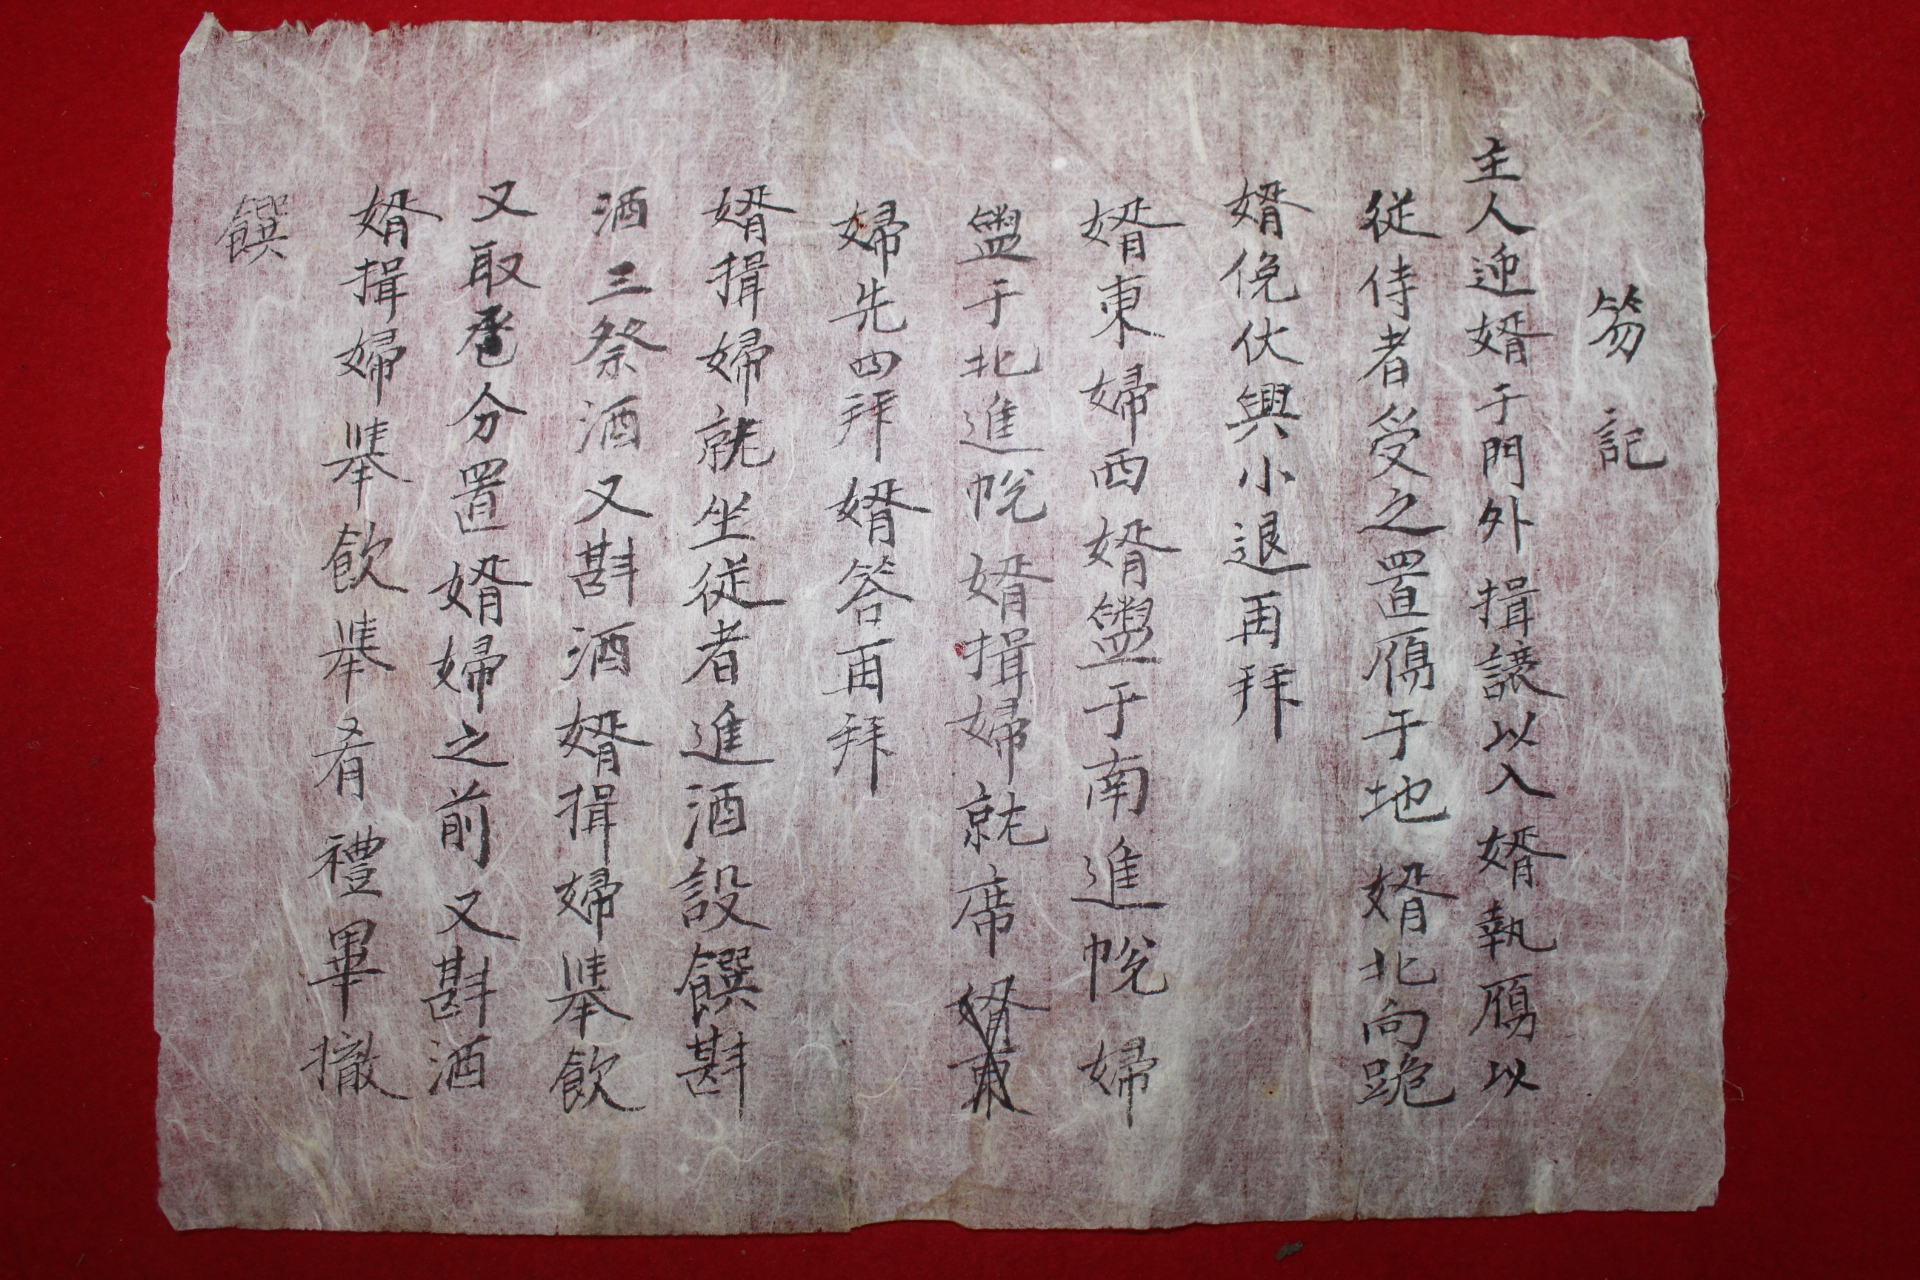 笏記
主人迎婿于門外揖讓以入婿執鴈以
從侍者受之置鴈于地婿北向跪
婿俛伏興小退再拜
婿東婦西婿盥于南進帨婦
盥于北進帨婿揖婦就席婿東
婦先四拜婿答再拜
婿揖婦就坐從者進酒設饌斟
酒三祭酒又斟酒婿揖婦擧飮
又取巹分置婿婦之前又斟酒
婿揖婦擧飮擧肴禮畢撤
饌